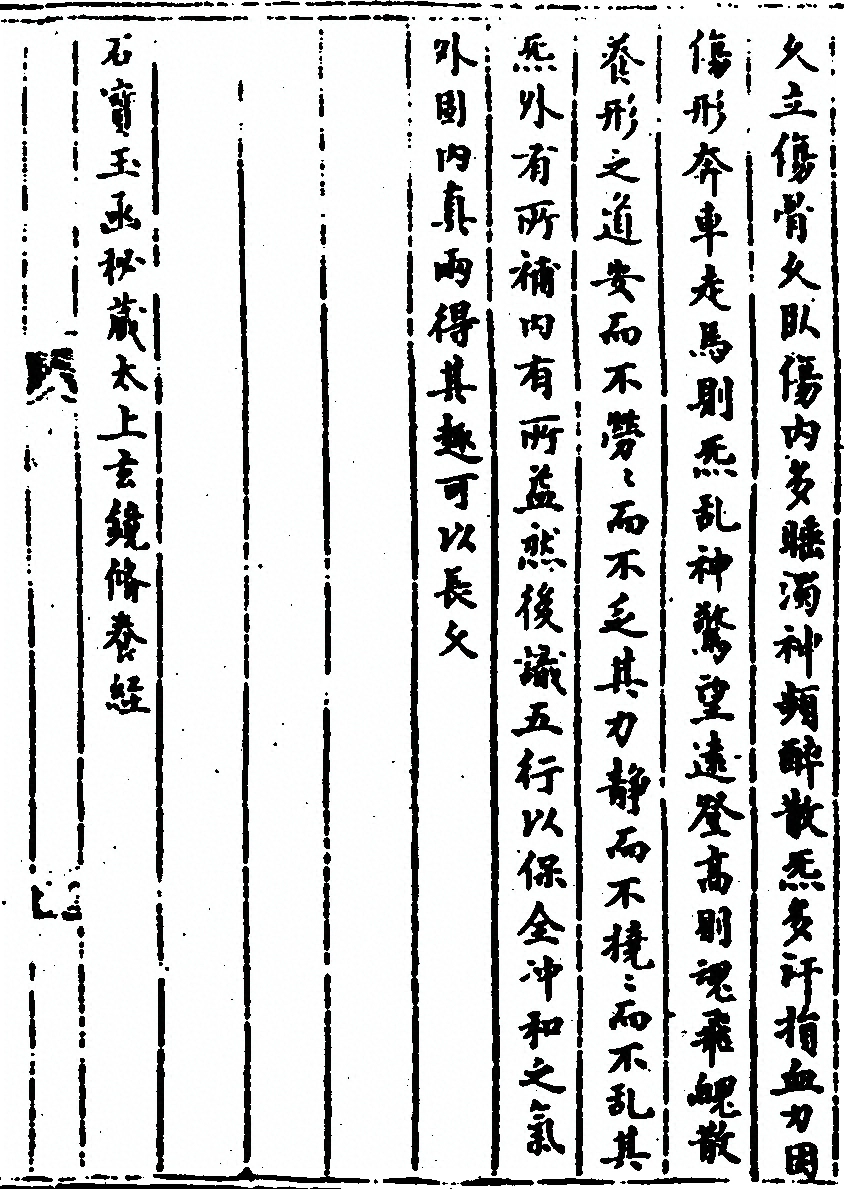 久立傷骨久臥傷內多睡濁神頻醉散炁多汗損血力困
傷形奔車走馬則炁乱神驚望遠登高則魂飛魄散
养形之道安而不勞〻而不乏其力静而不撓〻而不乱其
炁外有所補內有所益然後識五行以保全冲和之氣
外固內真兩得其趣可以長久
石寶玉函秘蔵太上玄鏡脩养経